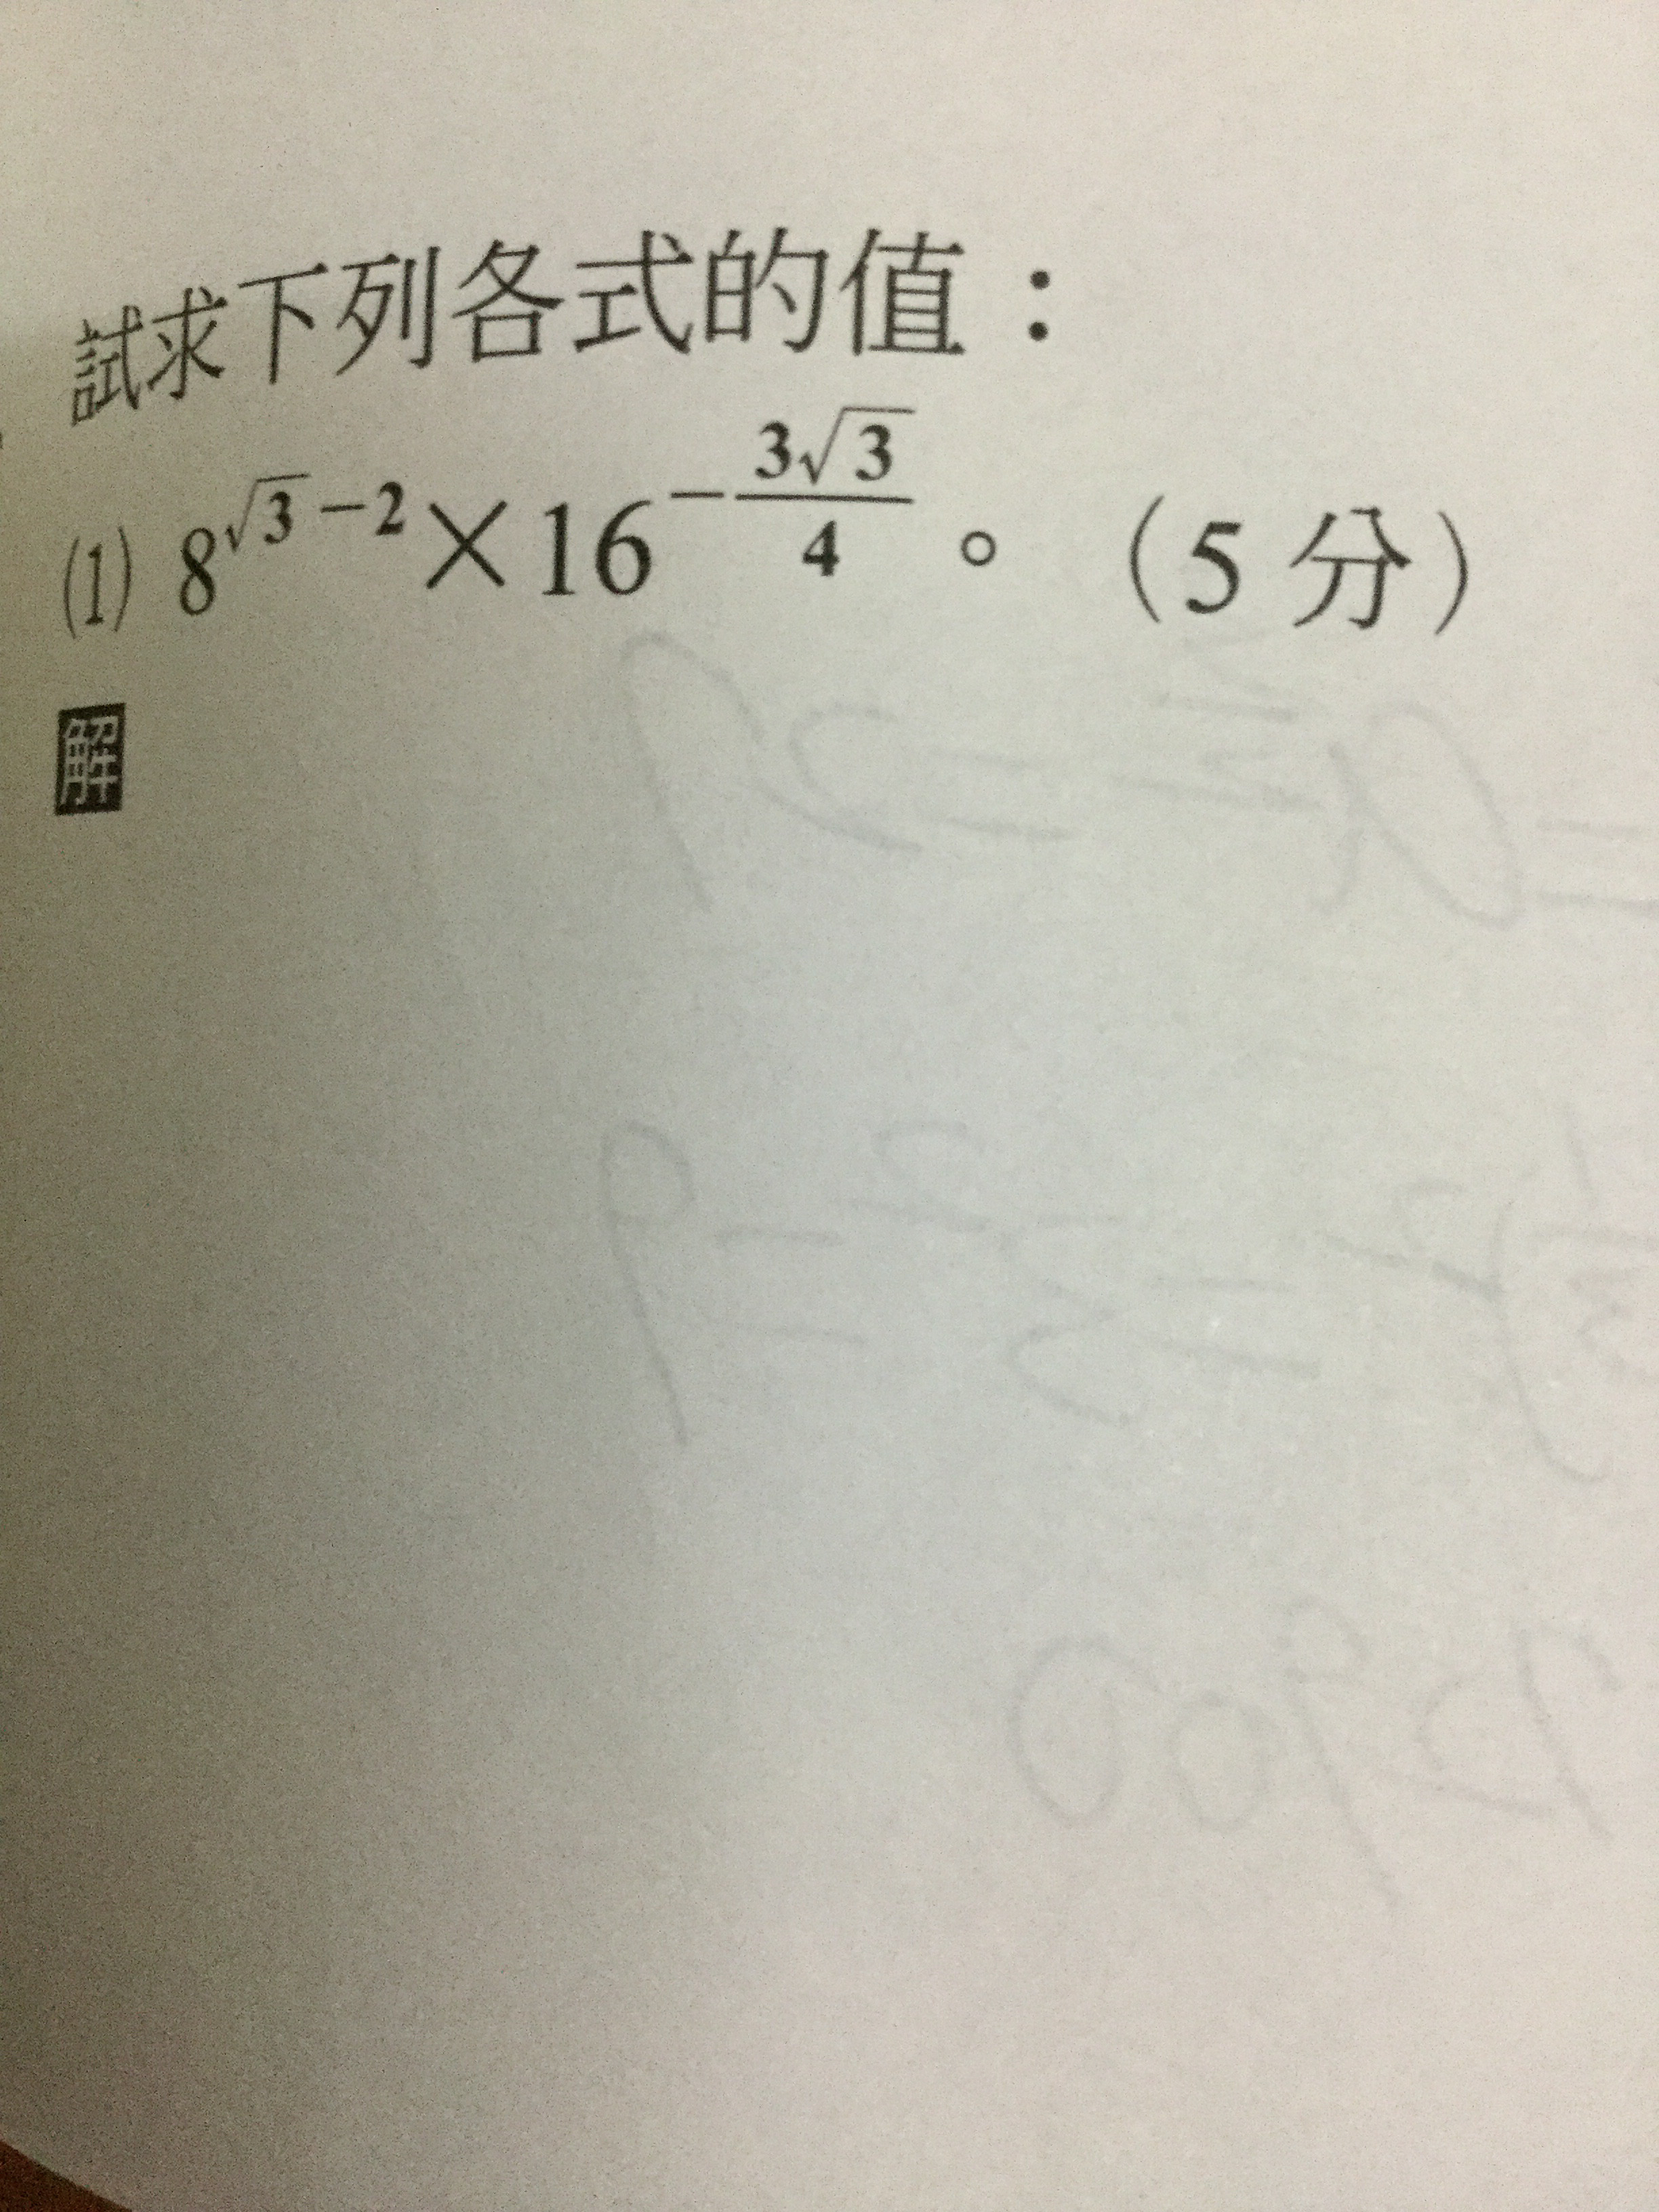 試求下列各式的值：
(1) 8^{√3−2}×16^{−\frac{3√3}{4}}。（5 分）
解